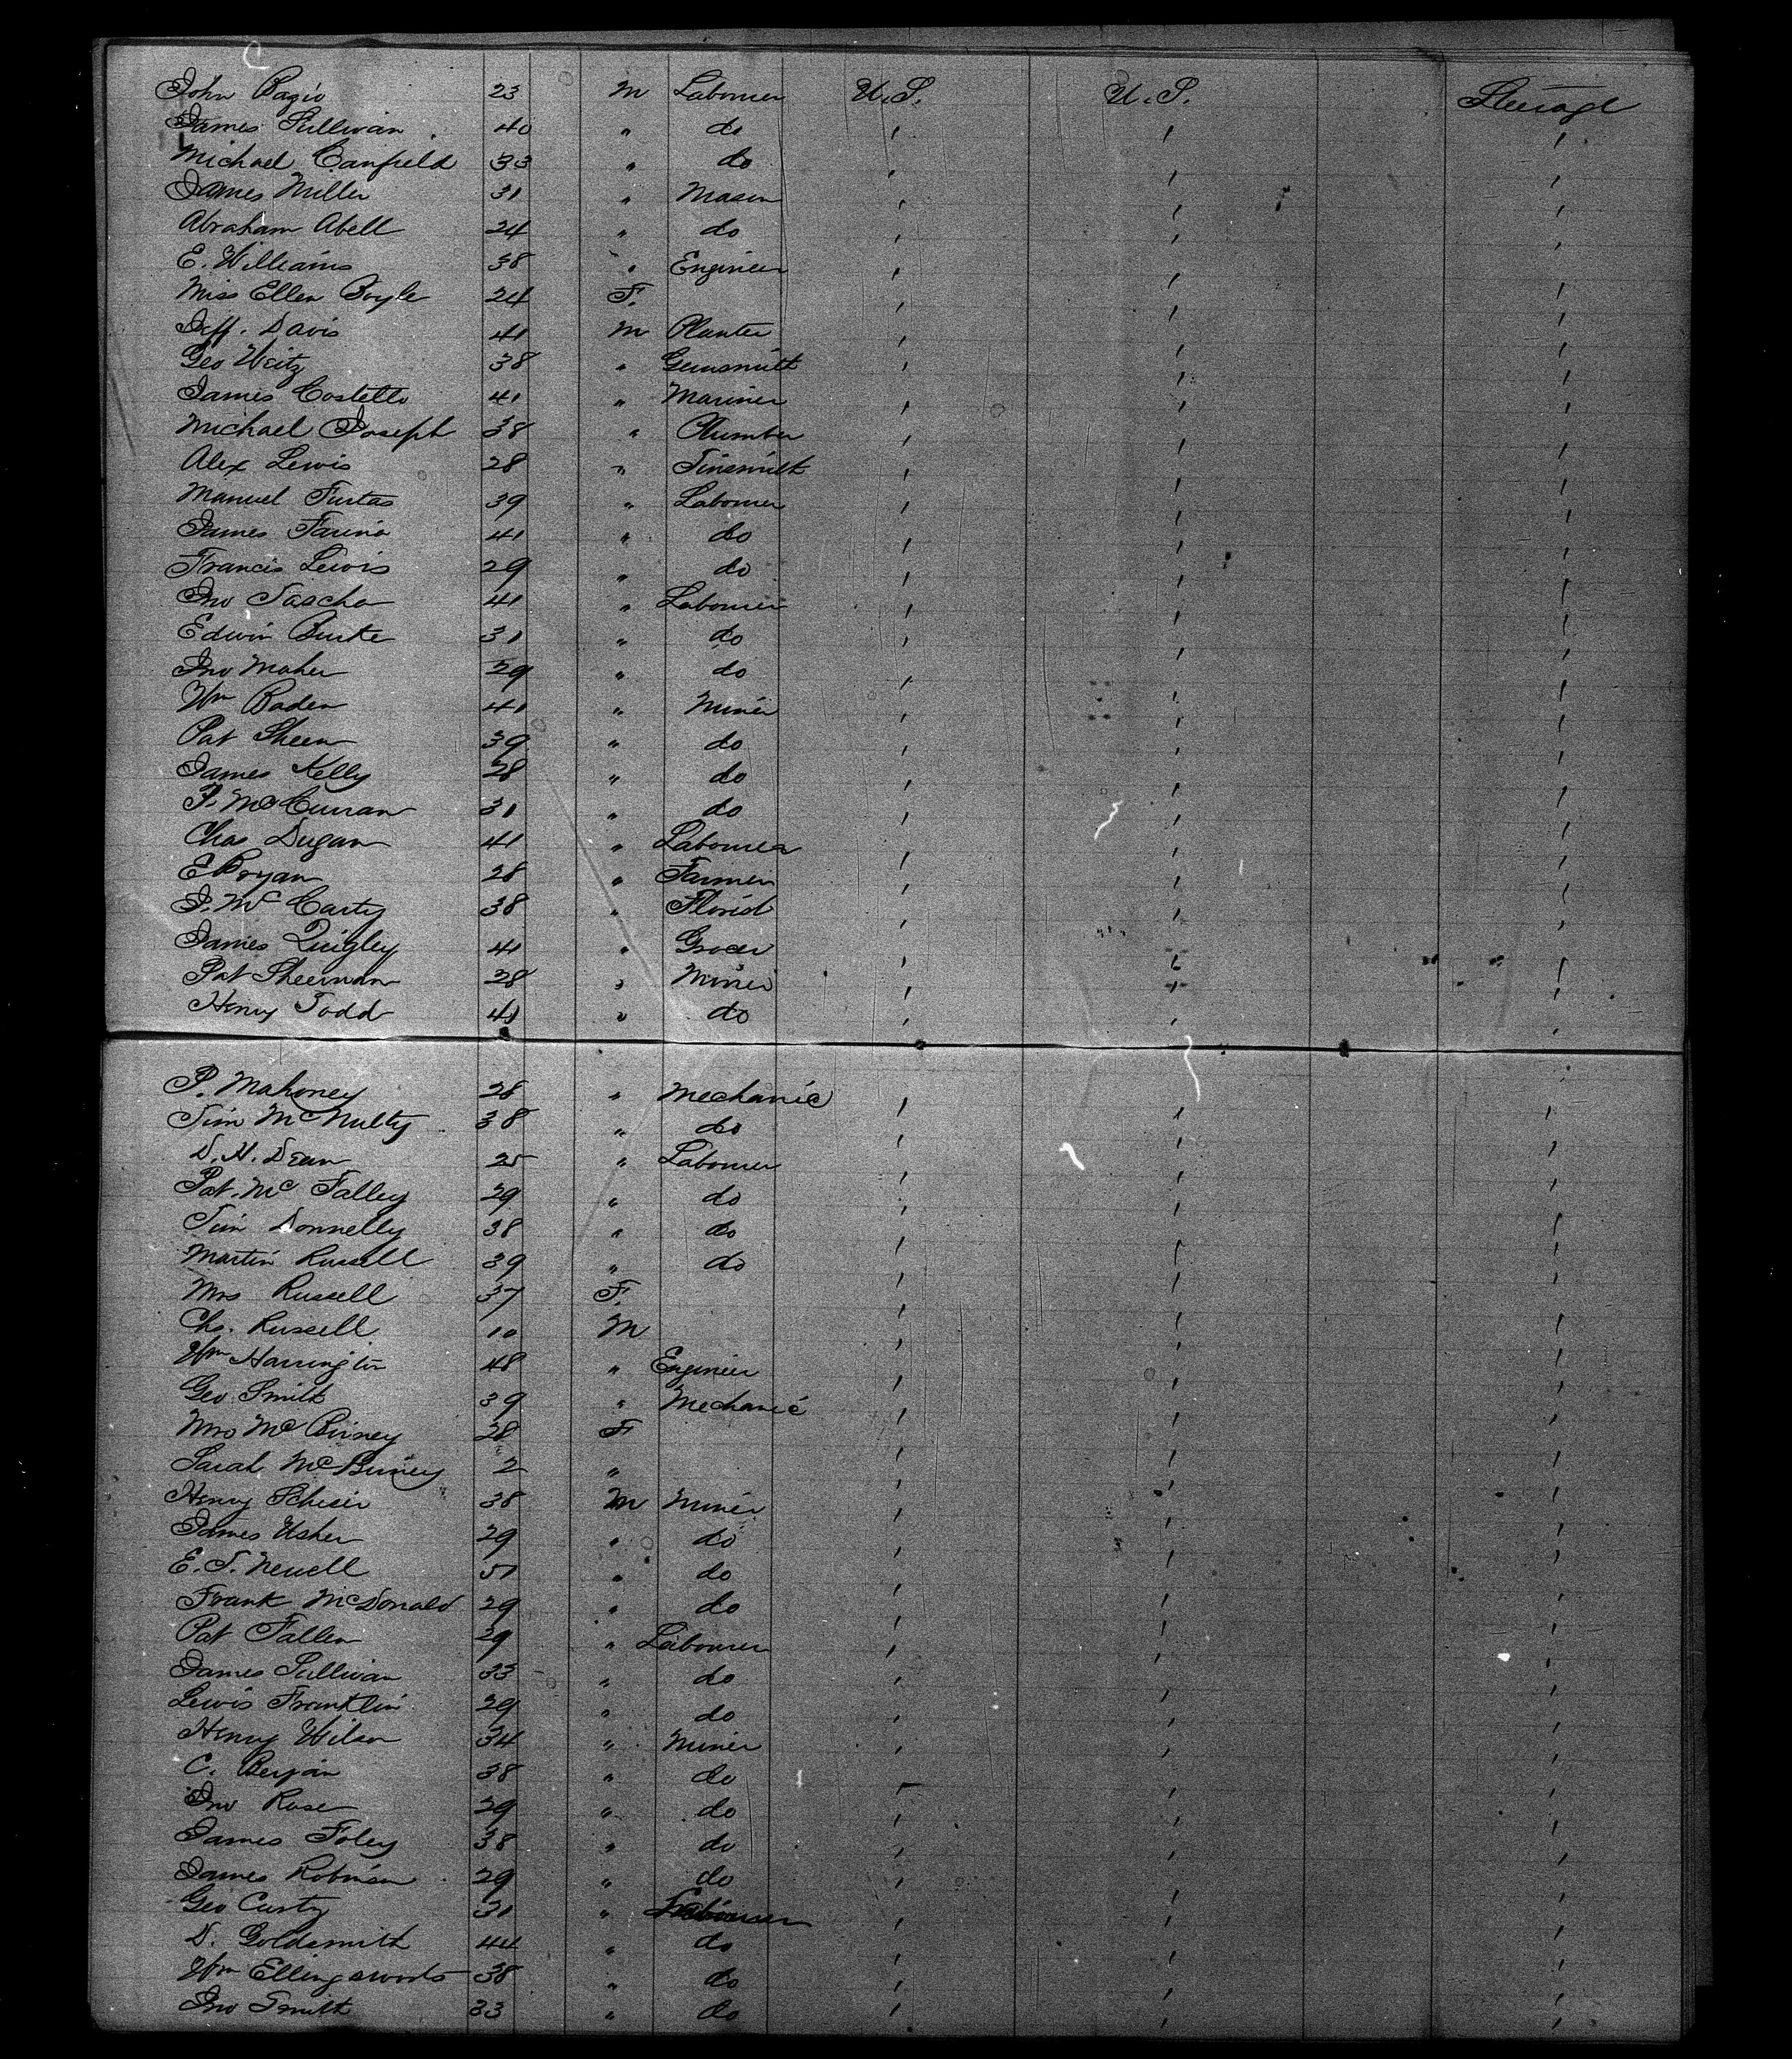 John Bagio 23 M Labourer U.S. U.S. Steerage
James Sullivan 40 " do ' ' '
Michael Canfield 33 " do ' ' '
James Miller 31 " Mason ' ' '
Abraham Abell 24 " do ' ' '
E. Williams 38 " Engineer ' ' '
Miss Ellen Boyle 24 F. ' ' '
Jeff. Davis 41 M Planter ' ' '
Geo Weitz 38 " Gunsmith ' ' '
James Costello 41 " Mariner ' ' '
Michael Joseph 38 " Plumber ' ' '
Alex Lewis 28 " Tinsmith ' ' '
Manuel Furtas 39 " Labourer ' ' '
James Farino 41 " do ' ' '
Francis Lewis 29 " do ' ' '
Jno Tascha 41 " Labourer ' ' '
Edwin Burke 31 " do ' ' '
Jno Maher 29 " do ' ' '
Wm Baden 41 " Miner ' ' '
Pat Sheen 39 " do ' ' '
James Kelly 28 " do ' ' '
P. McCurran 31 " do ' ' '
Chas Dugan 41 " Labourer ' ' '
E Bryan 28 " Farmer ' ' '
J. McCarty 38 " Florist ' ' '
James Quigley 41 " Grocer ' ' '
Pat Sheernan 28 " Miner ' ' '
Henry Todd 41 " do ' ' '
P. Mahoney 28 " Mechanic ' ' '
Tim McNulty 38 " do ' ' '
D. H. Dean 25 " Labourer ' ' '
Pat. Mc Falley 29 " do ' ' '
Tim Donnelly 38 " do ' ' '
Martin Russell 39 " do ' ' '
Mrs Russell 37 F. ' ' '
Chs. Russell 10 M ' ' '
Wm Harrington 48 " Engineer ' ' '
Geo Smith 39 " Mechanic ' ' '
Mrs McBirney 28 F ' ' '
Sarah McBirney 2 " ' ' '
Henry Scheer 38 M Miner ' ' '
James Usher 29 " do ' ' '
E. T. Newell 51 " do ' ' '
Frank McDonald 29 " do ' ' '
Pat Fallen 29 " Labourer ' ' '
James Sullivan 33 " do ' ' '
Lewis Franklin 29 " do ' ' '
Henry Wilson 34 " Miner ' ' '
C. Berjan 38 " do ' ' '
Jno Rose 29 " do ' ' '
James Foley 38 " do ' ' '
James Robinson 29 " do ' ' '
Geo Custy 31 " Labourer ' ' '
D. Goldsmith 44 " do ' ' '
Wm Ellingswords 38 " do ' ' '
Jno Smith 33 " do ' ' '